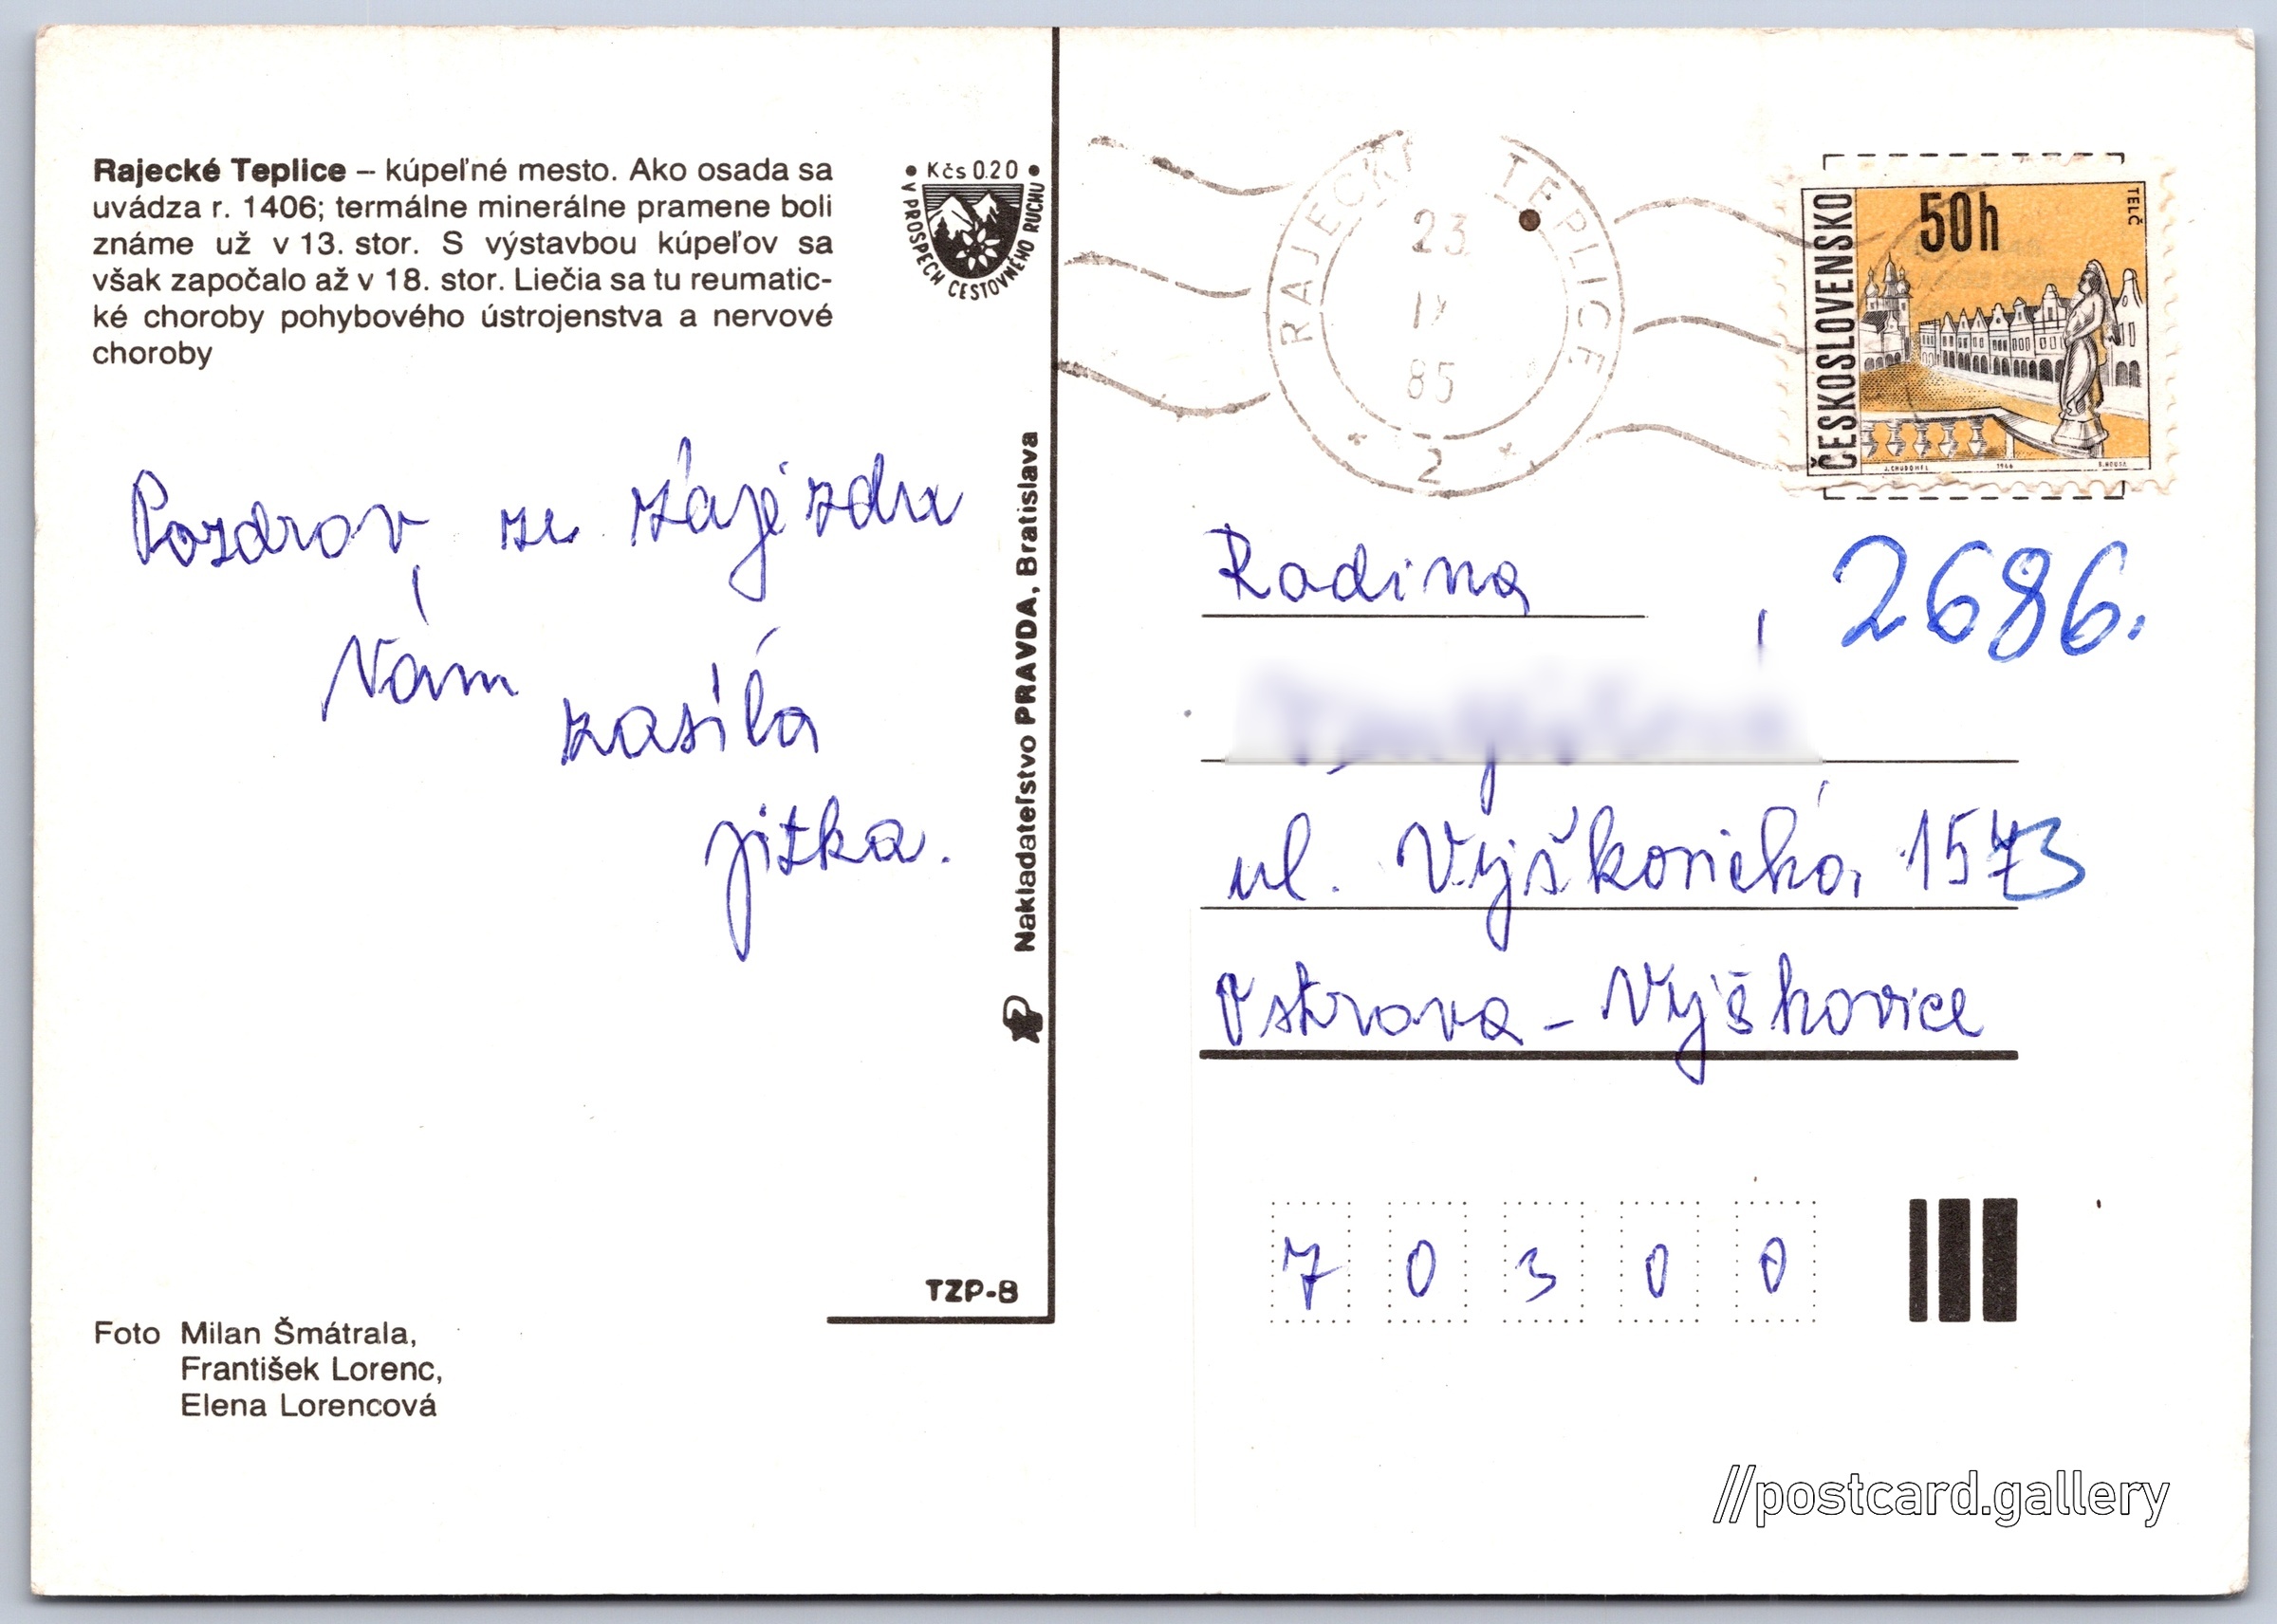 Rajecké Teplice – kúpeľné mesto. Ako osada sa
uvádza r. 1406; termálne minerálne pramene boli
známe už v 13. stor. S výstavbou kúpeľov sa
však započalo až v 18. stor. Liečia sa tu reumatic-
ké choroby pohybového ústrojenstva a nervové
choroby
• Kčs 0.20 •
V PROSPECH CESTOVNÉHO RUCHU
Pozdrav ze zájezdu
Vám
zasílá
Jitka.
Nakladateľstvo PRAVDA, Bratislava
TZP-8
Foto Milan Šmátrala,
František Lorenc,
Elena Lorencová
RAJECKÉ TEPLICE
23
85
* 2 *
ČESKOSLOVENSKO
50h
TELČ
J. CHUDOMEL 1966
Rodina
2686.
ul. Výškovická 1573
Ostrava – Výškovice
7 0 3 0 0
//postcard.gallery